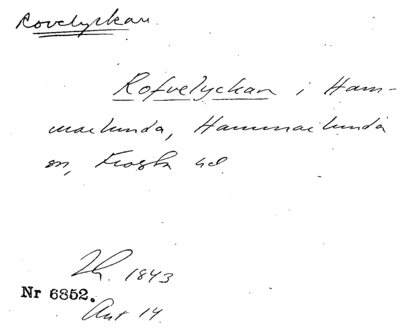 Rovelyckan
Rofvelyckan i Ham-
marlunda, Hammarlunda
sn, Frosta hd
1843
Nr 6852.
Akt 14